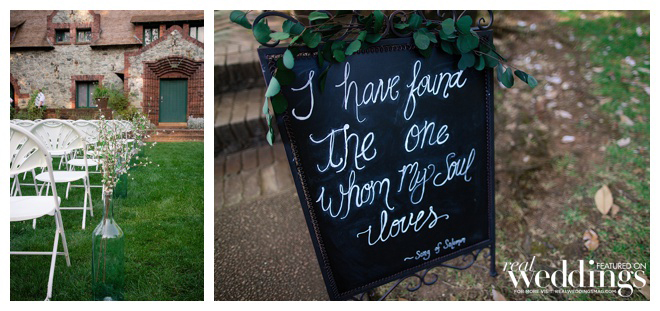 I have found
The one
whom My Soul
loves
~Song of Solomon
real
weddings
FEATURED ON
FOR MORE VISIT: REALWEDDINGSMAG.COM